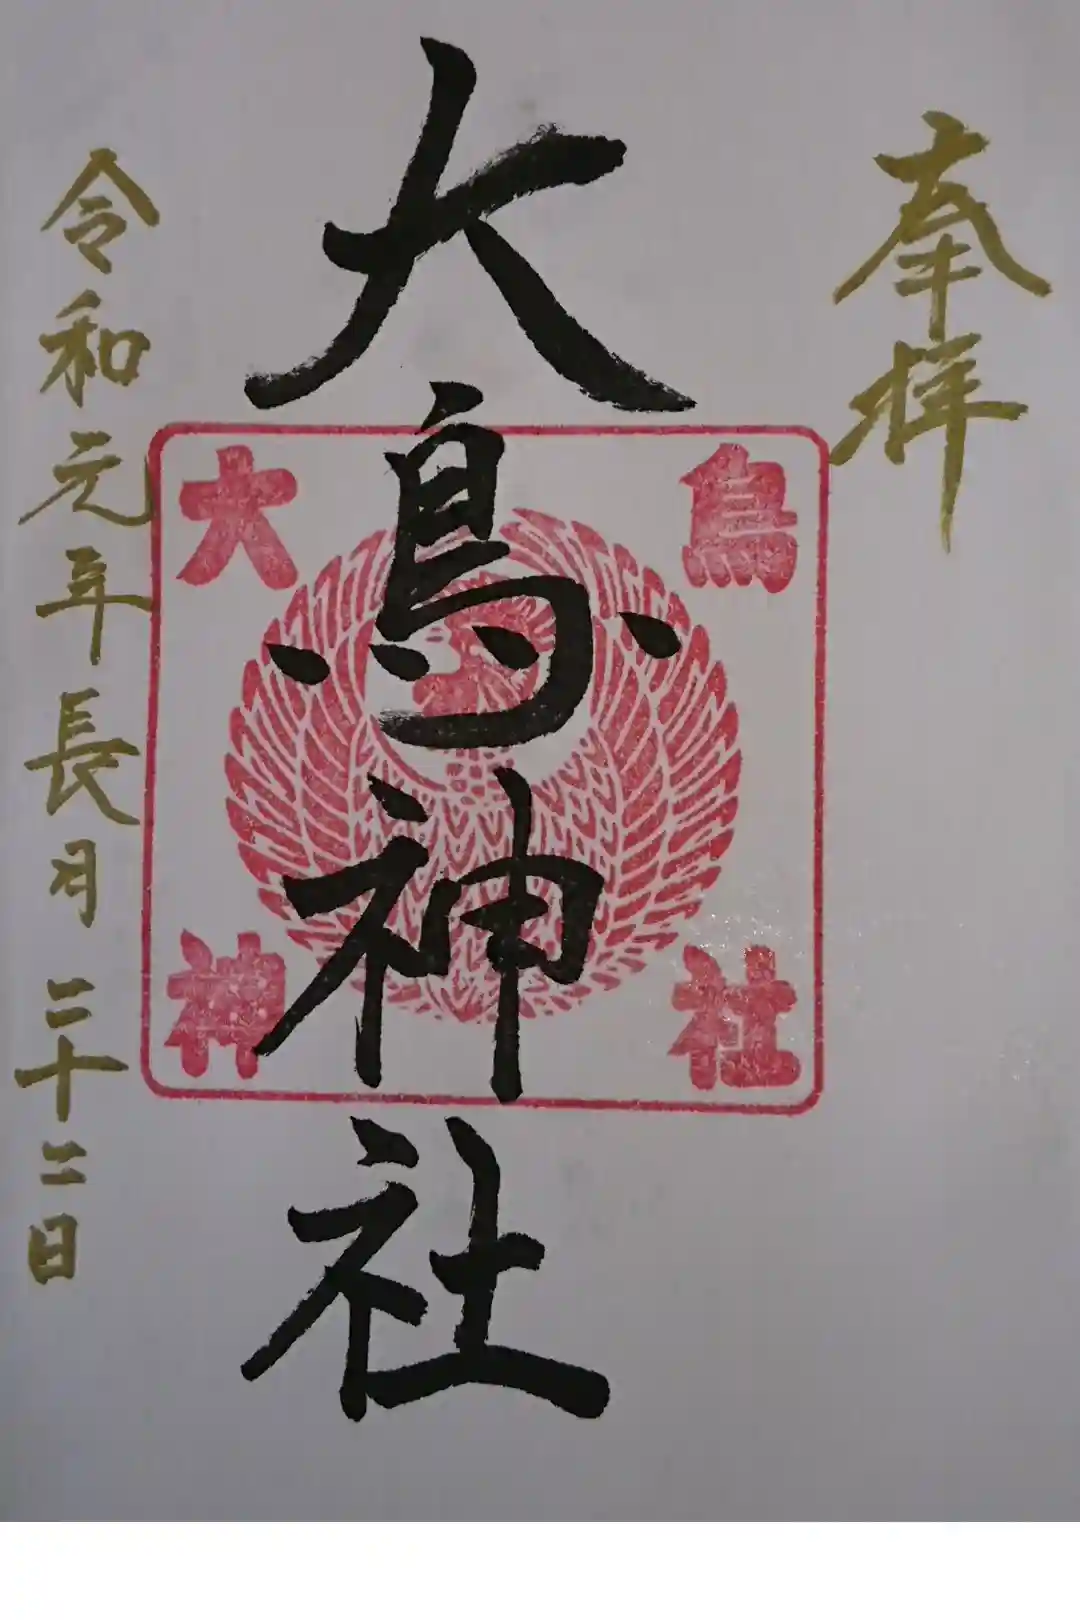 奉拝
大鳥神社
大鳥
神社
令和元年長月二十二日